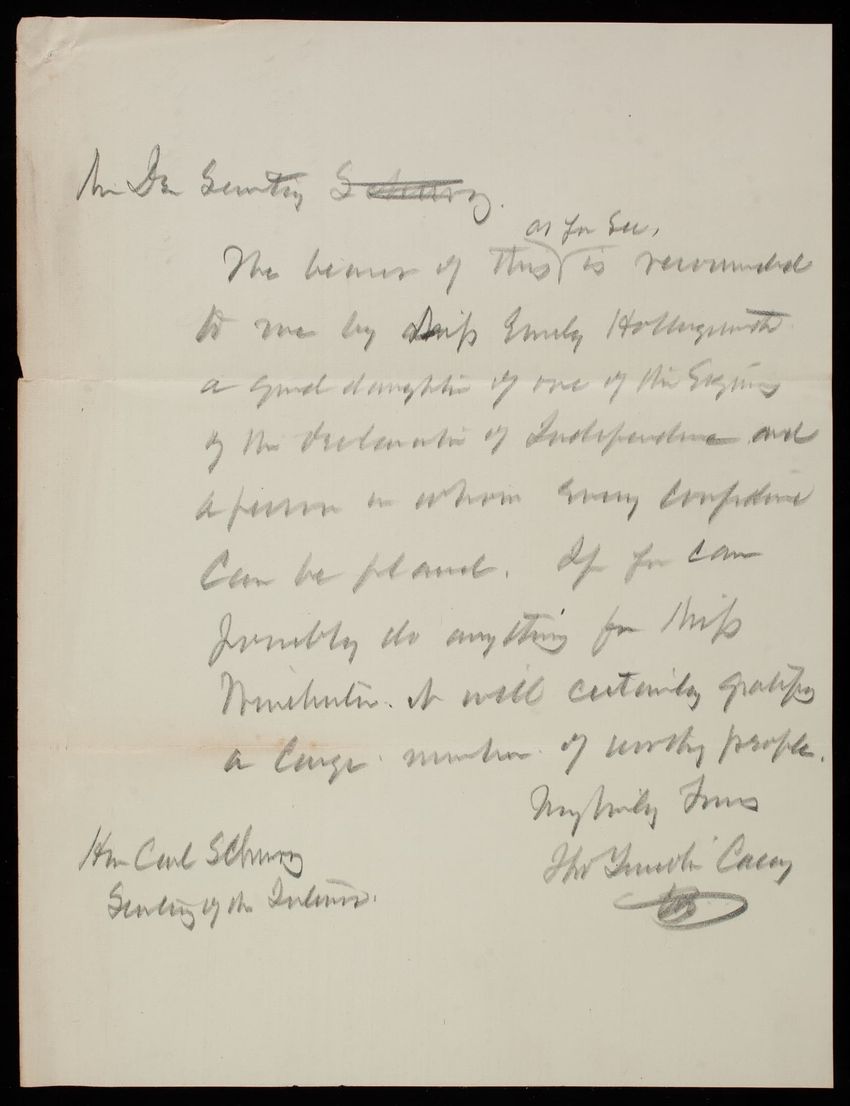 My Dear Secretary Schurz.
as you see,
The bearer of this is recommended
to me by Miss Emily Hollingsworth
a grand daughter of one of the Signers
of the Declaration of Independence and
a person in whom every confidence
can be placed. If you can
possibly do anything for Miss
Winchester it will certainly gratify
a large number of worthy people.
Very truly Yours
Thos Lincoln Casey
Hon Carl Schurz
Secretary of the Interior.